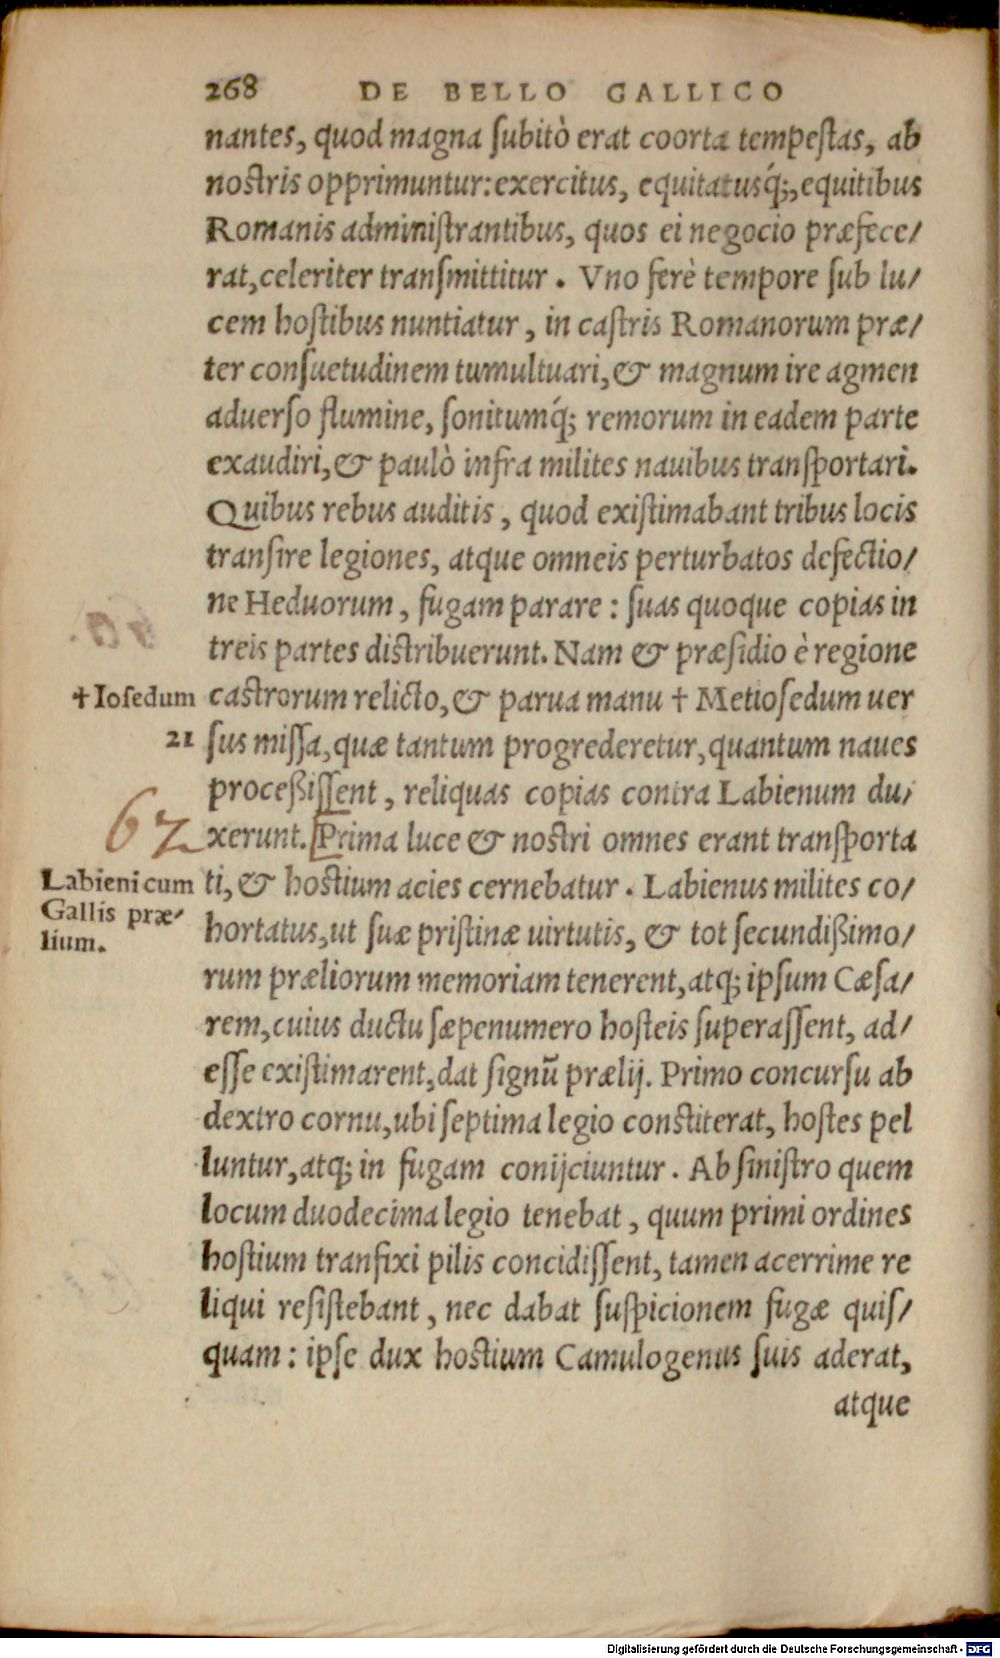 268 DE BELLO GALLICO
nantes, quod magna ſubitò erat coorta tempeſtas, ab
nostris opprimuntur: exercitus, equitatusq́;, equitibus
Romanis adminiſtrantibus, quos ei negocio præfece/
rat, celeriter tranſmittitur. Vno ferè tempore ſub lu/
cem hoſtibus nuntiatur, in caſtris Romanorum præ/
ter conſuetudinem tumultuari, & magnum ire agmen
aduerſo flumine, ſonitumq́; remorum in eadem parte
exaudiri, & paulò infra milites nauibus tranſportari.
Quibus rebus auditis, quod exiſtimabant tribus locis
tranſire legiones, atque omneis perturbatos defectio/
ne Heduorum, fugam parare: ſuas quoque copias in
treis partes distribuerunt. Nam & præſidio è regione
✝ Ioſedum
castrorum relicto, & parua manu ✝ Metioſedum uer
21
ſus miſſa, quæ tantum progrederetur, quantum naues
proceßiſſent, reliquas copias contra Labienum du/
62
xerunt. [Prima luce & nostri omnes erant tranſporta
Labieni cum
Gallis præ/
lium.
ti, & hostium acies cernebatur. Labienus milites co/
hortatus, ut ſuæ priſtinæ uirtutis, & tot ſecundißimo/
rum præliorum memoriam tenerent, atq; ipſum Cæſa/
rem, cuius ductu ſæpenumero hoſteis ſuperaſſent, ad/
eſſe exiſtimarent, dat ſignū prælij. Primo concurſu ab
dextro cornu, ubi ſeptima legio constiterat, hoſtes pel
luntur, atq; in fugam conijciuntur. Ab ſiniſtro quem
locum duodecima legio tenebat, quum primi ordines
hoſtium tranſixi pilis concidiſſent, tamen acerrime re
liqui reſiſtebant, nec dabat ſuſpicionem fugæ quiſ/
quam: ipſe dux hostium Camulogenus ſuis aderat,
atque
Digitalisierung gefördert durch die Deutsche Forschungsgemeinschaft - DFG